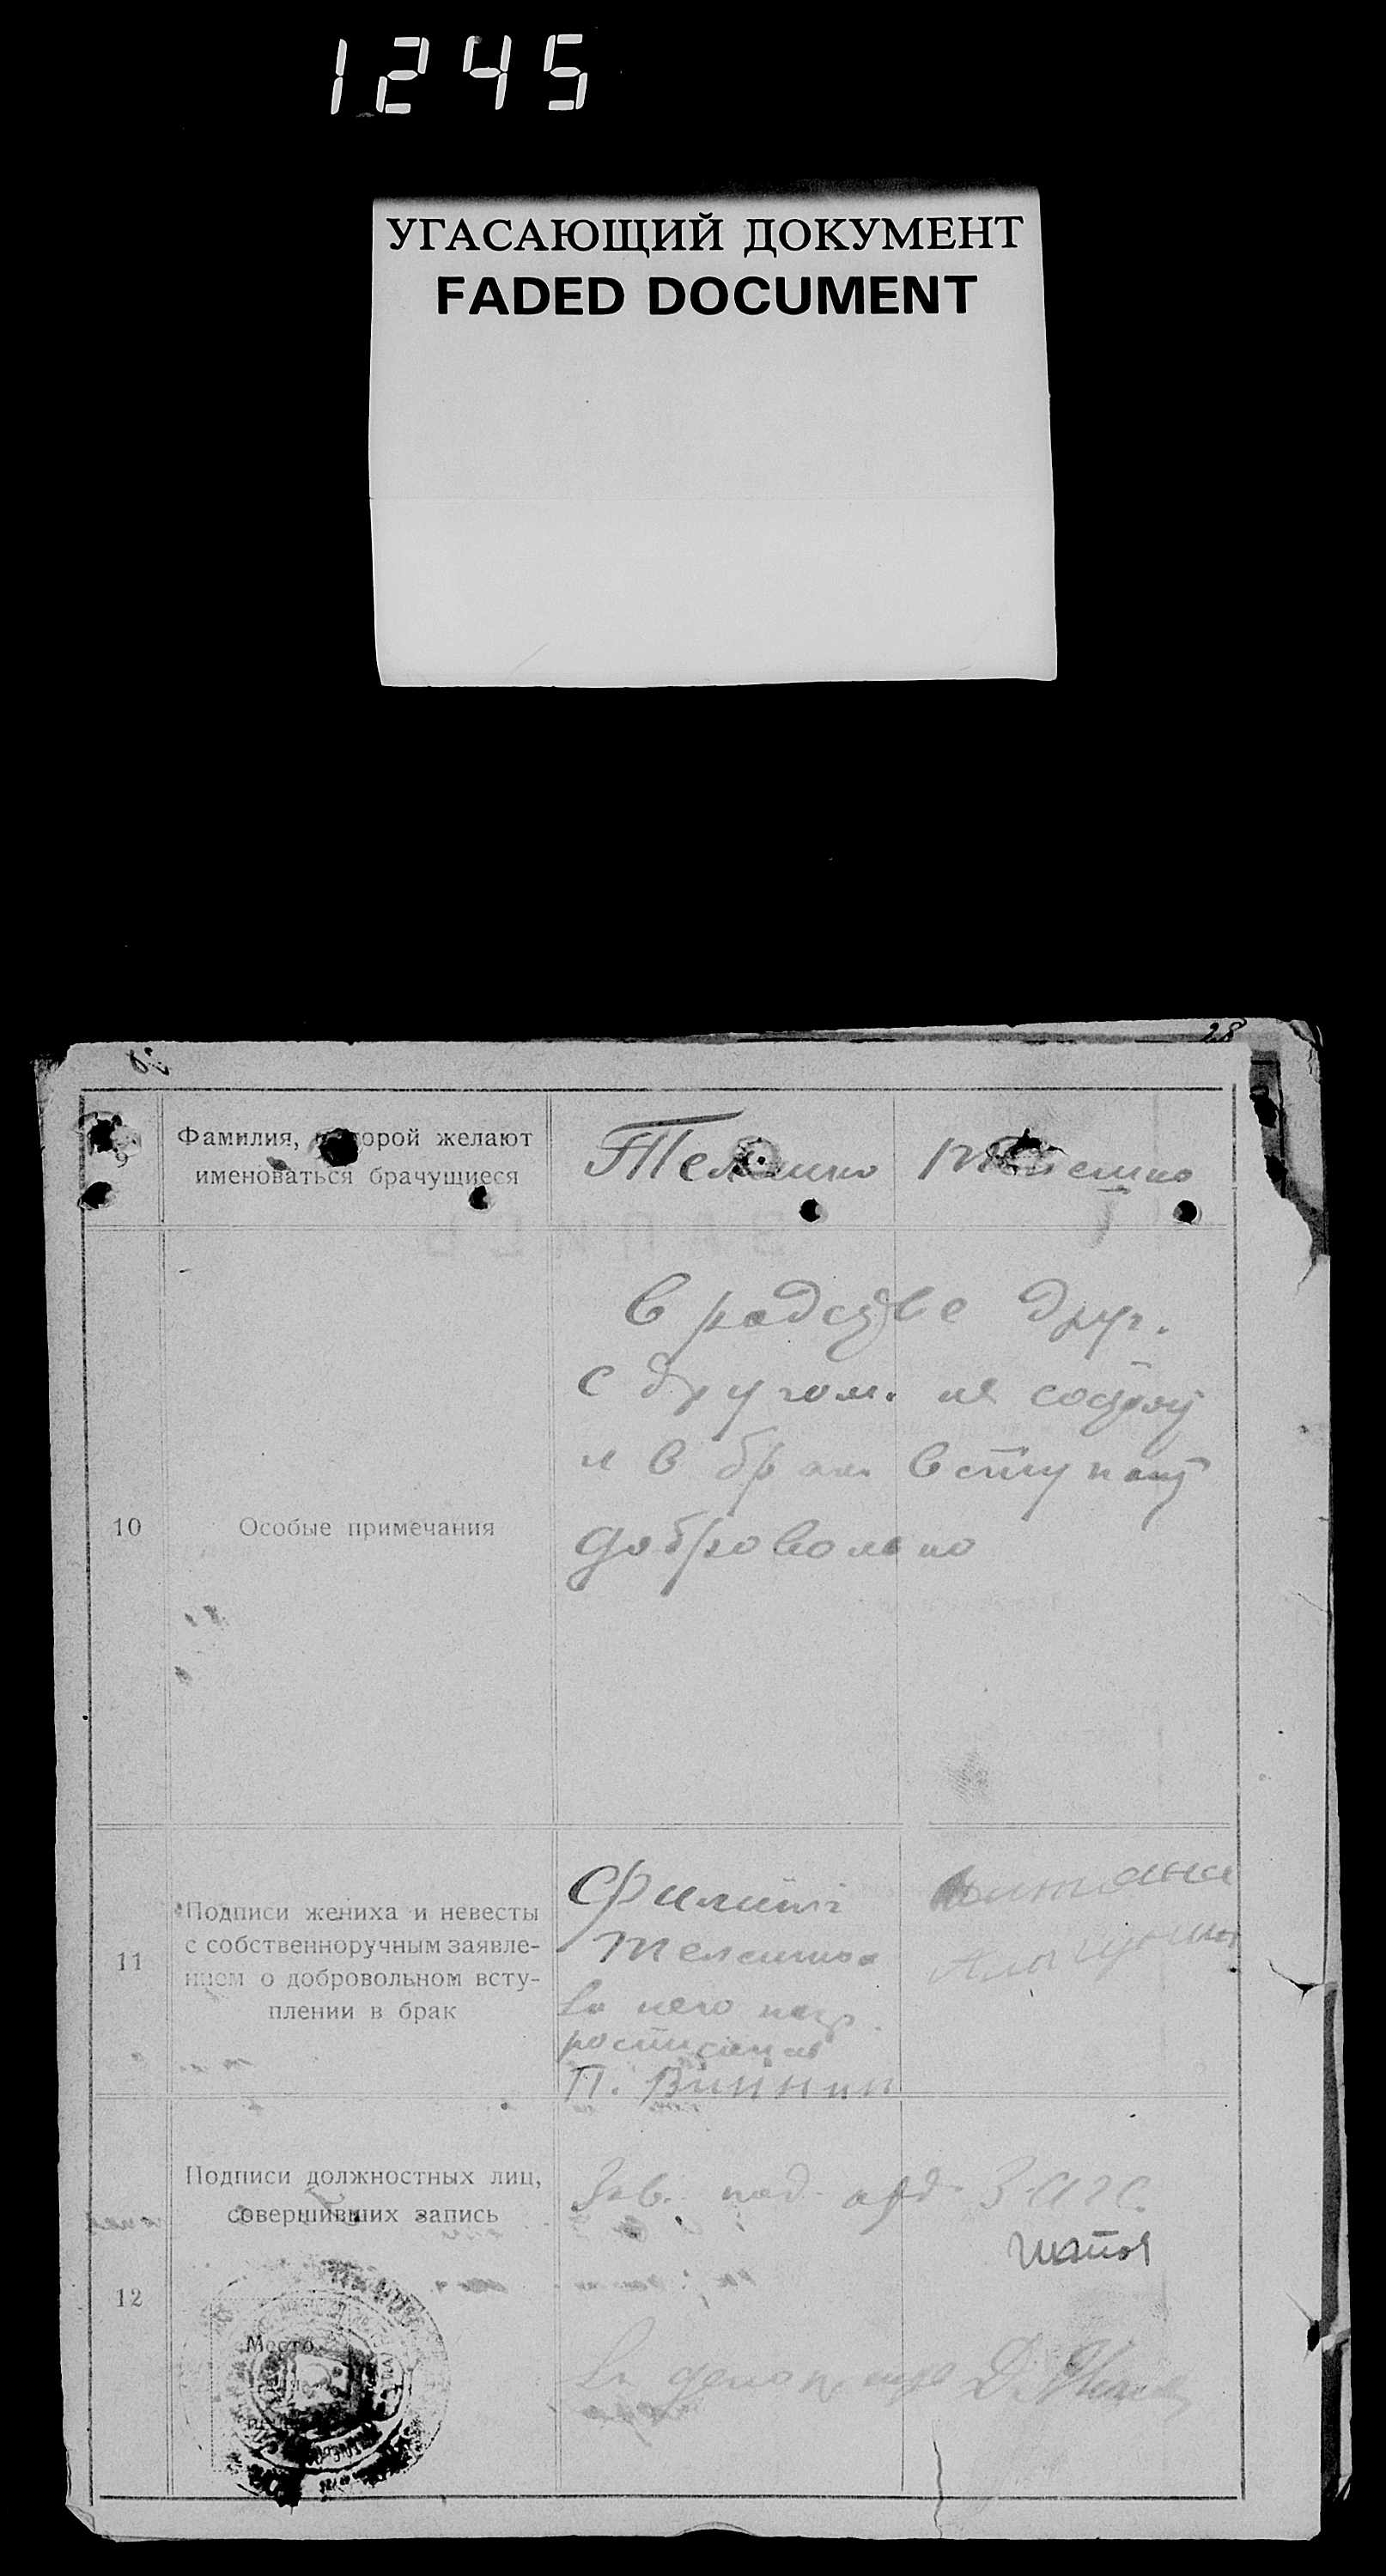 1245
УГАСАЮЩИЙ ДОКУМЕНТ
FADED DOCUMENT
28
9
Фамилия, которой желают
именоваться брачущиеся
Телешко
Телешко
10
Особые примечания
В родстве друг.
с другом. не состоят
и в брак вступают
добровольно
11
Подписи жениха и невесты
с собственноручным заявле-
нием о добровольном всту-
плении в брак
Филипп
Телешко
За него негр.
росписался
П.
12
Подписи должностных лиц,
совершивших запись
Зав. под. отд. ЗАГС.
За делопр.
Место